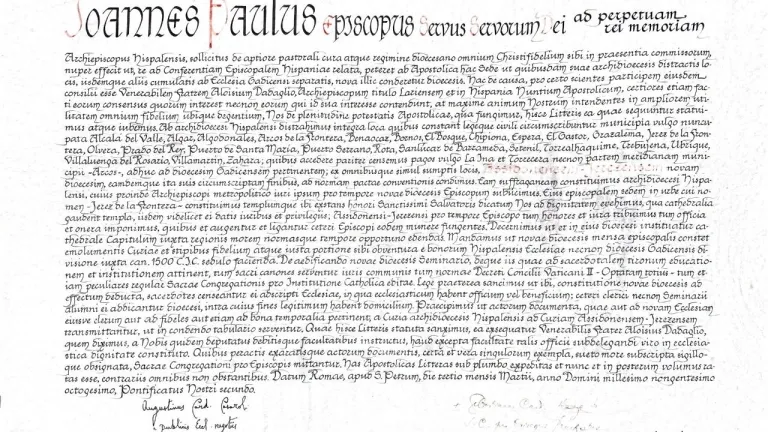 IOANNES PAULUS Episcopus Servus Servorum Dei ad perpetuam rei memoriam
Archiepiscopus Hispalensis, sollicitus de aptiore pastorali cura atque regimine dioecesano omnium Christifidelium sibi in praesentia commissorum,
nuper effecit ut, re ad Conferentiam Episcopalem Hispaniae relata, peteret ab Apostolica hac Sede ut quibusdam suae archidioecesis distractis lo-
cis, iisdemque aliis cumulatis ab Ecclesia Gadicensi separatis, nova illic conderetur dioecesis. Hac de causa, pro certo scientes participem eiusdem
consilii esse Venerabilem Fratrem Aloisium Dadaglio, Archiepiscopum titulo Lariensem et in Hispania Nuntium Apostolicum, certiores etiam fac-
ti eorum consensus quorum interest necnon eorum qui id sua interesse contendunt, at maxime animum Nostrum intendentes in ampliorem uti-
litatem omnium fidelium ubique degentium, Nos de plenitudine potestatis Apostolicae, qua fungimur, hisce Litteris ea quae sequuntur statui-
mus atque iubemus. Ab archidioecesi Hispalensi distrahimus integra loca quibus constant legeque civili circumscribuntur municipia vulgo nuncu-
pata Alcalá del Valle, Algar, Algodonales, Arcos de la Frontera, Benaocaz, Bornos, El Bosque, Chipiona, Espera, El Gastor, Grazalema, Jerez de la Fron-
tera, Olvera, Prado del Rey, Puerto de Santa María, Puerto Serrano, Rota, Sanlúcar de Barrameda, Setenil, Torrealháquime, Trebujena, Ubrique,
Villaluenga del Rosario, Villamartín, Zahara; quibus accedere pariter censemus pagos vulgo La Ina et Torrecera necnon partem meridianam muni-
cipii -Arcos-, adhuc ad dioecesim Gadicensem pertinentem; ex omnibusque simul sumptis locis, novam
dioecesim, eamdemque ita suis circumscriptam finibus, ad normam partae conventionis condimus. Eam suffraganeam constituimus archidioecesi Hispa-
lensi, cuius proinde Archiepiscopi metropolitico iuri ipsum pro tempore novae dioecesis Episcopum subicimus. Eius episcopalem sedem in urbe cui no-
men -Jerez de la Frontera- constituimus templumque ibi exstans honori Sanctissimi Salvatoris dicatum Nos ad dignitatem evehimus, qua cathedralia
gaudent templa, iisdem videlicet ei datis iuribus et privilegiis; Assidonensi-Jerezensi pro tempore Episcopo tum honores et iura tribuimus tum officia
et onera imponimus, quibus et augentur et ligantur ceteri Episcopi eodem munere fungentes. Decernimus ut et in eius dioecesi instituatur ca-
thedrale Capitulum iuxta regionis morem normasque tempore opportuno edendas. Mandamus ut novae dioecesis mensa episcopalis constet
emolumentis Curiae et stipibus fidelium citaque iusta portione sibi obventura e bonorum Hispalensis Ecclesiae necnon dioecesis Gadicensis di-
visione iuxta can. 1500 C.I.C. sedulo facienda. De aedificando novae dioecesis Seminario, deque iis quae ad sacerdotalem tironum educatio-
nem et institutionem attinent, tum sacri canones serventur iuris communis tum normae Decreti Concilii Vaticani II - Optatam totius - tum et-
iam peculiares regulae Sacrae Congregationis pro Institutione Catholica editae. Lege praeterea sancimus ut ibi, constitutione novae dioecesis ad
effectum deducta, sacerdotes censeantur ei adscripti Ecclesiae, in qua ecclesiasticum habent officium vel beneficium; ceteri clerici necnon Seminarii
alumni ei addicantur dioecesi, intra cuius fines legitimum habent domicilium. Praecipimus ut actorum documenta, quae aut ad novam Ecclesiam
eiusve clerum aut ad fideles aut etiam ad bona temporalia pertinent, a Curia archidioecesis Hispalensis ad Curiam Assidonensem-Jerezensem
transmittantur, ut in condendo tabulario serventur. Quae hisce Litteris statuta sanximus, ea exsequatur Venerabilis Frater Aloisius Dadaglio,
quem diximus, a Nobis quidem deputatus debitisque facultatibus instructus, haud excepta facultate talis officii subdelegandi viro in ecclesia-
stica dignitate constituto. Quibus peractis exaratisque actorum documentis, certa et vera singulorum exempla, sueto more subscripta sigillo-
que obsignata, Sacrae Congregationi pro Episcopis mittantur. Has Apostolicas Litteras sub plumbo expeditas et nunc et in posterum volumus ra-
tas esse, contrariis omnibus non obstantibus. Datum Romae, apud S. Petrum, die tertio mensis Martii, anno Domini millesimo nongentesimo
octogesimo, Pontificatus Nostri secundo.
Augustinus Card. Casaroli
a publicis Eccl. negotiis